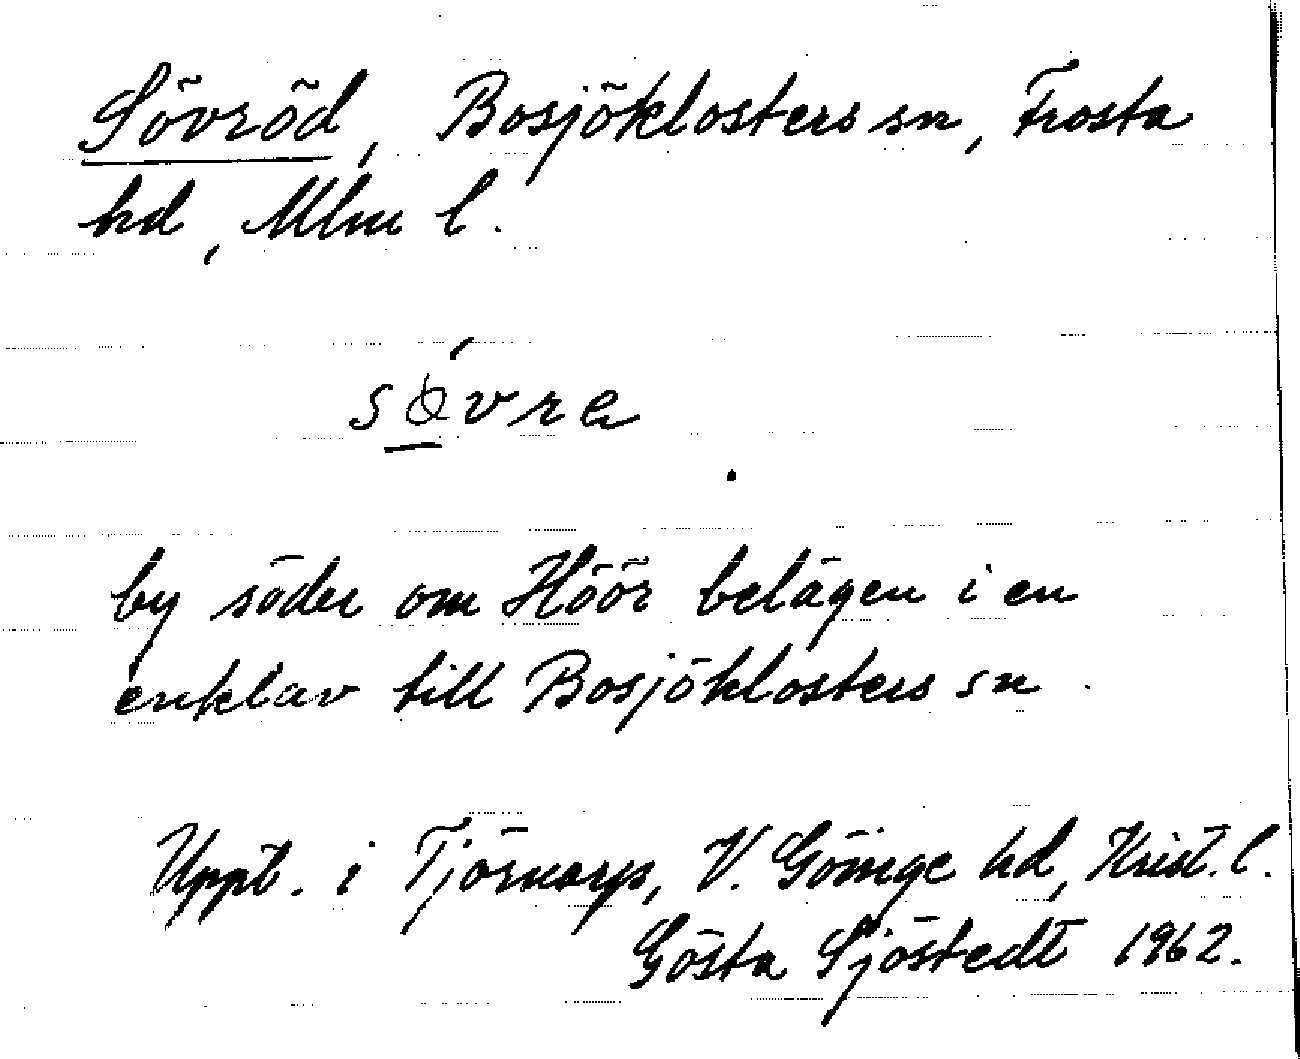 Sövröd, Bosjöklosters sn, Frosta
hd, Mlm l.
sǿ̱vre
by söder om Höör belägen i en
enklav till Bosjöklosters sn.
Uppt. i Tjörnarp, V. Göinge hd, Krist. l.
Gösta Sjöstedt 1962.